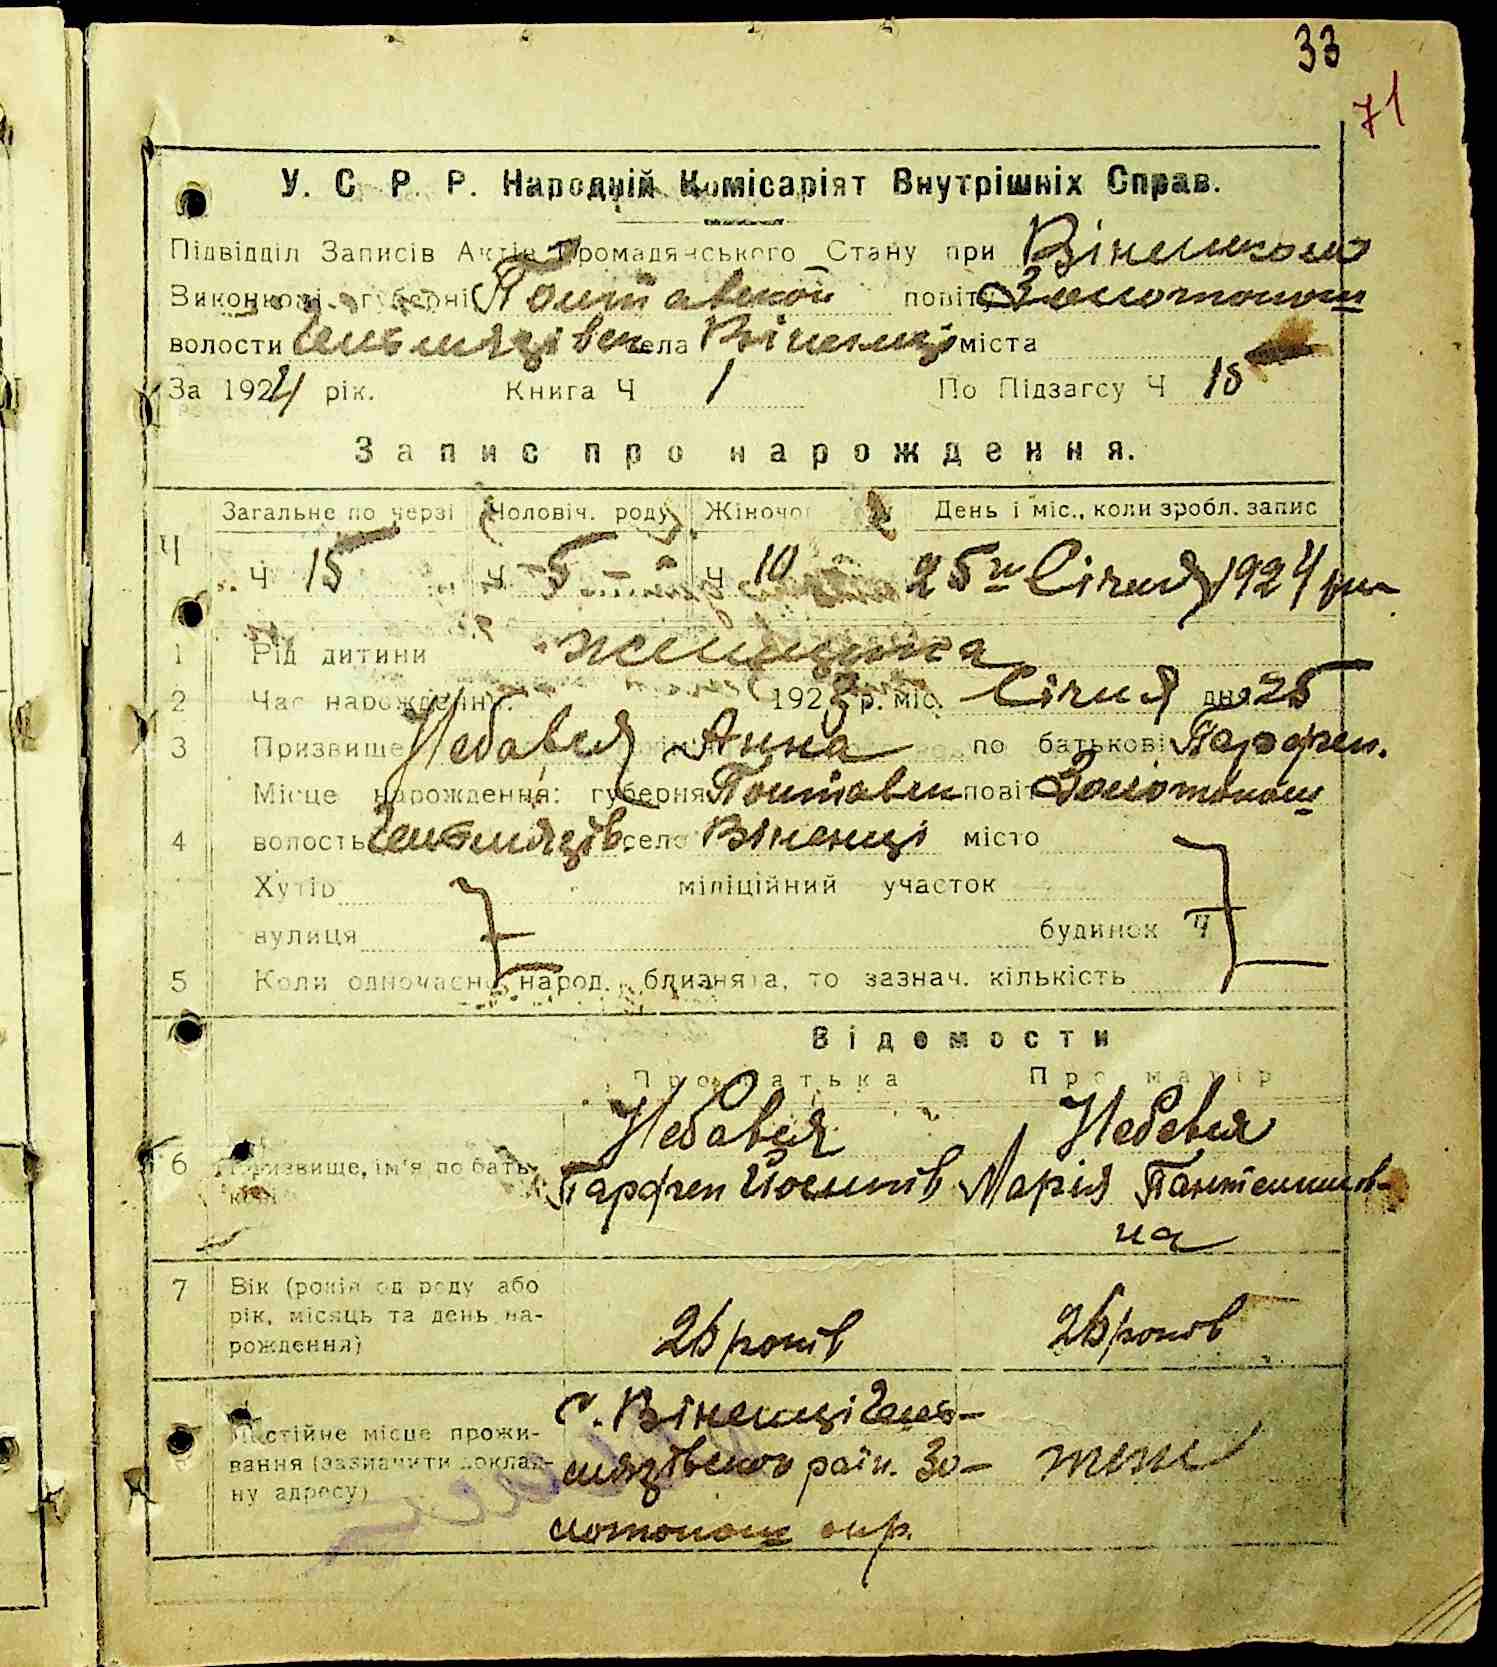 33
71
У. С. Р. Р. Народній Комісаріят Внутрішніх Справ.
Підвідділ Записів Актів Громадянського Стану при Віненском
Виконкомі губерні Полтавской повіту Золотонош
волости Гельмязівск села Віненці міста
За 1924 рік. Книга Ч 1 По Підзагсу Ч 15
Запис про народження.
Загальне по черзі Чоловіч. роду Жіночого День і міс., коли зробл. запис
Ч
Ч 15 Ч 5 Ч 10 25го Січня 1924 рік
1 Рід дитини женщина
2 Час народження: 1923 р. міс. Січня дня 25
3 Призвище Небався Анна по батькові Парфен.
Місце народження: губерня Полтавск повіт Золотонош
4 волость Гельмязів село Віненці місто
Хутір міліційний участок
вулиця будинок Ч
5 Коли одночасно народ. близнята, то зазнач. кількість
Відомости
Про батька Про матір
Небався Небався
6 Призвище, ім'я по бать-
Парфен Йосипів Марія Пантелимов-
кові
на
7 Вік (років од роду або
рік, місяць та день на-
рождення) 26 років 26 років
с. Віненці Гель-
Постійне місце прожи-
вання (зазначити доклад- мязівског раін. Зо- тоже
ну адресу)
лотонош окр.